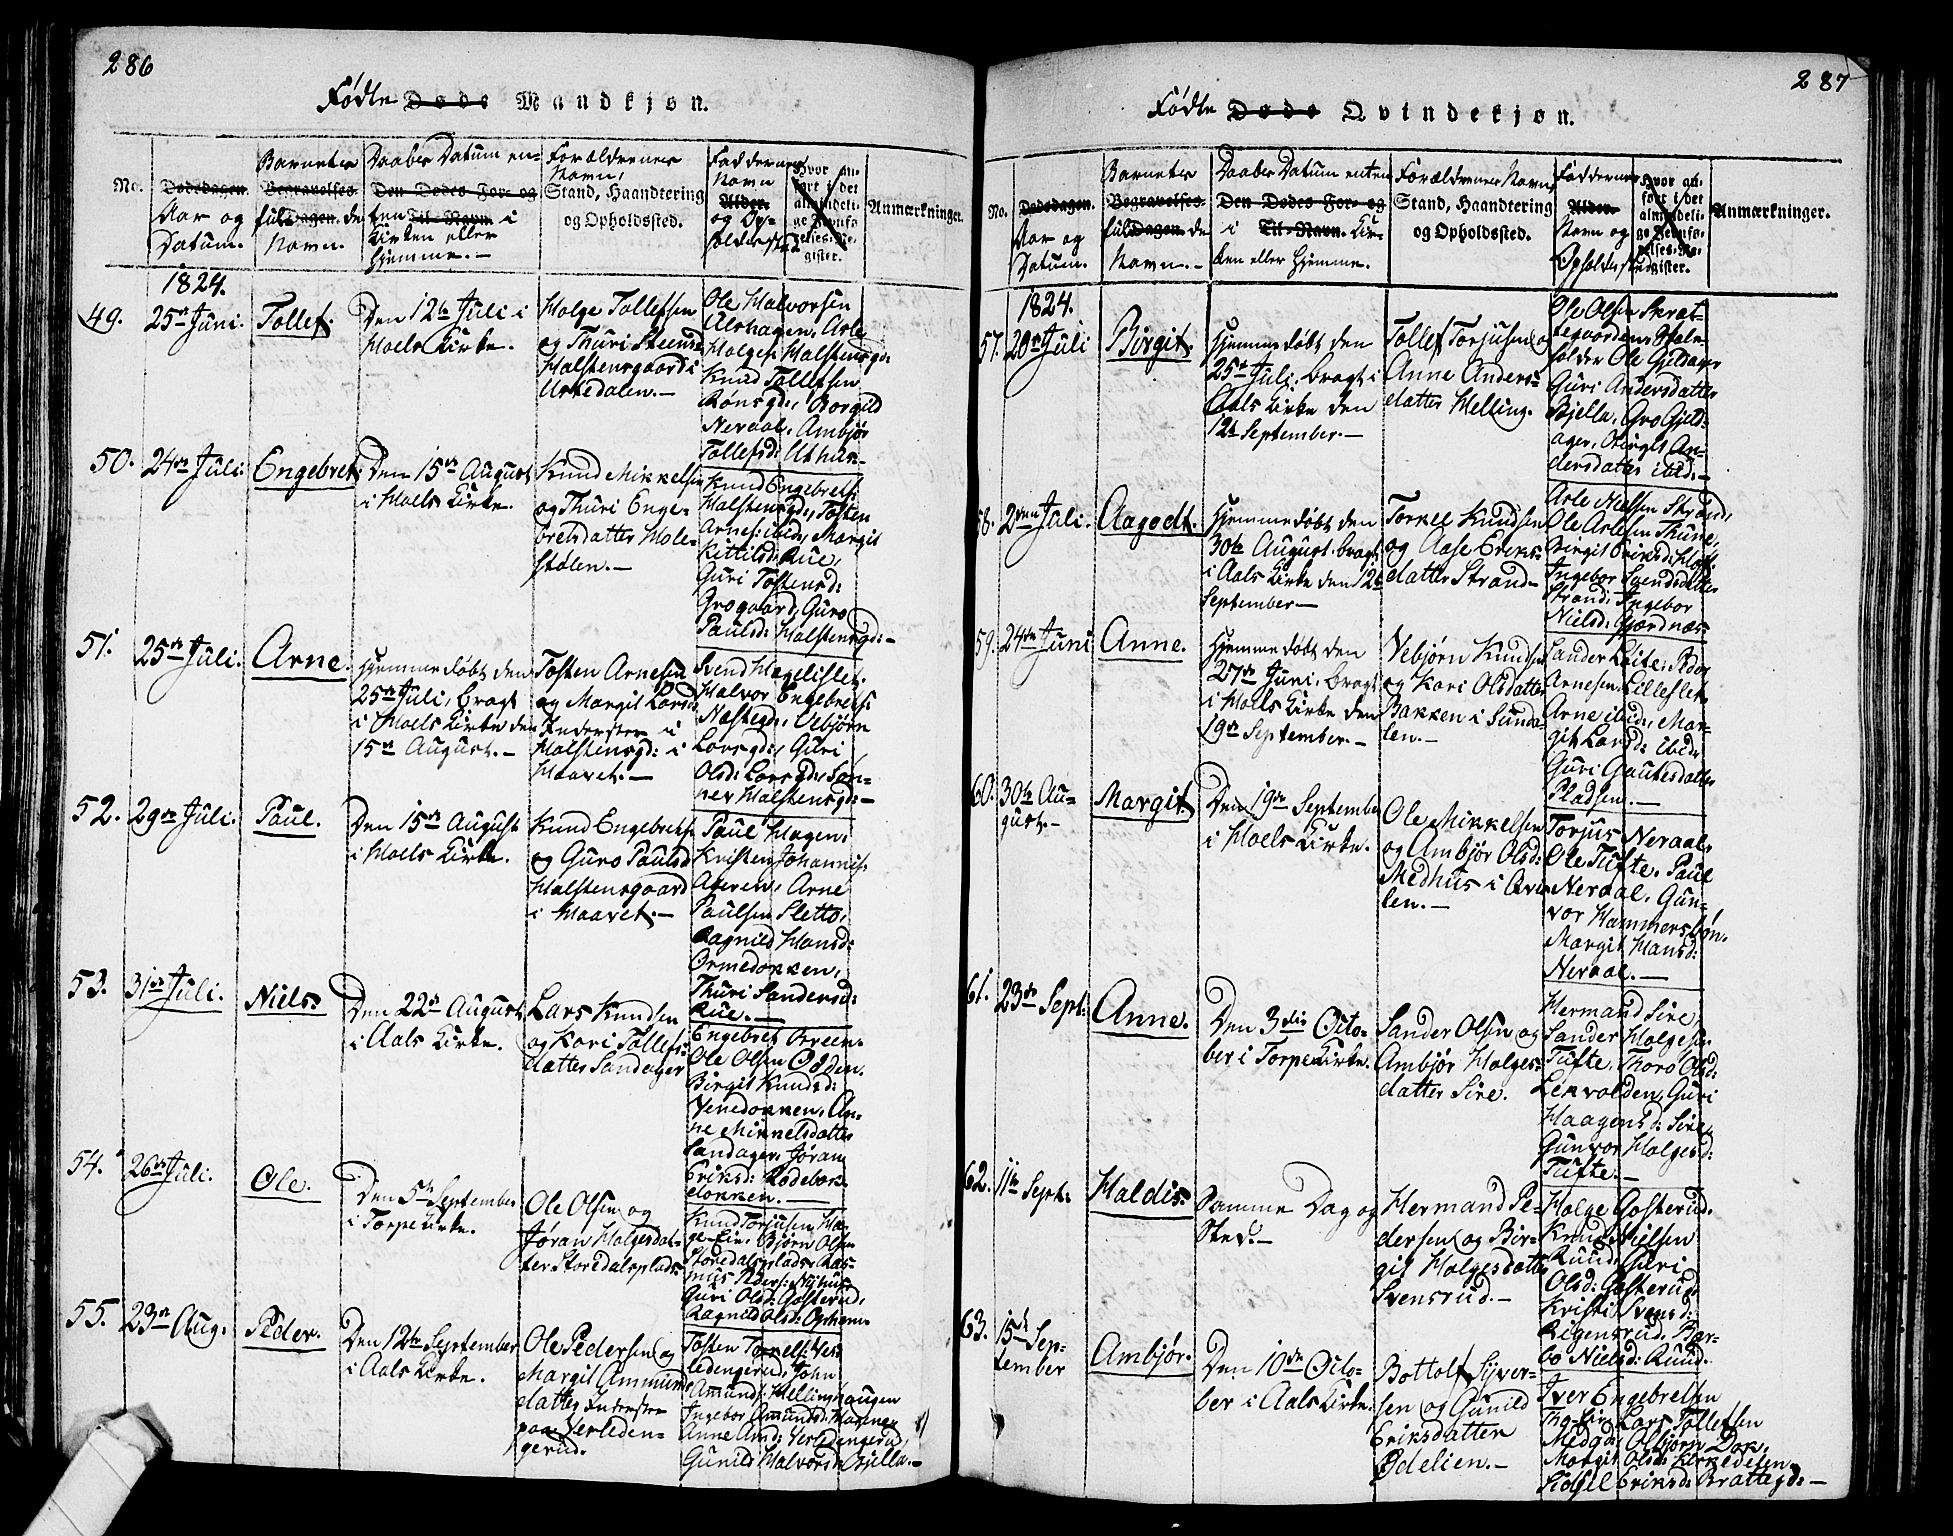 286
Fødte Døde Mandkjøn.
No.
Dødsdagen.
Aar og
Datum.
Barnets
Begravelses-
fulde Dagen.
Navn.
Daabes Datum en-
Den Dødes For- og
ten Til-Navn i
Kirken eller
hjemme.
Forældrenes
Navn,
Stand, Haandtering
og Opholdssted.
Faddernes
Navn
Alder.
og Op-
holdssted
Hvor an-
ført i det
almindeli-
ge Jevnfø-
relses-Re-
gister.
Anmærkninger.
1824.
49.
25de Juni.
Tollef.
Den 12te Juli i
Hoels Kirke.
Holge Tollefsen
og Thuri Steensd
Halstensgaard i
Urkedalen.
Ole Halvorsen
Alrhagen, Arle
Holges: Halstensgd:
Knud Tollefsen
Rønsgd:, Borgild
Neraal, Ambjør
Tollefsd: Uthus
50.
24de Juli.
Engebret.
Den 15de August
i Hoels Kirke.
Knud Mikkelsen
og Thuri Enge-
bretsdatter Hole-
stølen.
Knud Engebrets:
Halstensgd:, Tosten
Arnes: ibid, Margit
Kittilsd: Rue,
Guri Tostensd:
Grogaard, Guro
Paulsd: Halstensgd:
51.
25de Juli.
Arne.
Hjemmedøbt den
25de Juli, bragt
i Hoels Kirke den
15de August.
Tosten Arnesen
og Margit Larsd
Inderster i
Halstensgd: i
Haavet.
Svend Hagelislet
Halvor Engebrets:
Næstegd:, Vebjørn
Larsgd:, Guri
Olsd: Larsgd:, Gun-
ner Halstensgd:
52.
29de Juli.
Paul.
Den 15de August
i Hoels Kirke.
Knud Engebrets:
og Guro Paulsd
Halstensgaard
i Haavet.
Paul Hagen,
Kristen Johannis:
Ageren, Arne
Paulsen Sletto,
Ragnild Hansd:
Ormedokken,
Thuri Sandersd:
Rue.
53.
31de Juli.
Niels.
Den 22de August
i Aals Kirke.
Lars Knudsen
og Kari Tollefs-
datter Sandager
Engebret Breen.
Ole Olsen Odden.
Birgit Knudsd:
Venedokken, An-
ne Mikkelsdatter
Sandager, Jøran
Eriksd: Rødebok-
dokken.
54.
26de Juli.
Ole.
Den 5te September
i Torpe Kirke.
Ole Olsen og
Jøran Holgesdat-
ter Storedalsplads:
Knud Torjusen Ha-
ge-Eie, Bjørn Olsen
Storedalsplads, Ras-
mus Peders: Nyhus
Guri Olsd: Gosterud,
Ragnild Olsd: Opheim.
55.
23de Aug.
Peder.
Den 12te September
i Aals Kirke.
Ole Pedersen og
Margit Ammunds
datter Inderster
paa Verleden-
gerud.
Tosten Torkels: Ver-
ledengerud, John
Amunds: Hellinghaugen
Ingebor Amundsd: Hareng
Anne Amd: Verledengerud,
Gunild Halvorsd: Bjella.
287
Fødte Døde Qvindekjøn.
No.
Dødsdagen.
Aar og
Datum.
Barnets
Begravelses-
fulde Dagen.
Navn.
Daabes Datum enten
Den Dødes For- og
i Til-Navn. Kir-
ken eller hjemme.
Forældrenes Navn
Stand, Haandtering
og Opholdssted.
Faddernes
Alder.
Navn og
Opholdssted
Hvor an-
ført i det
almindeli-
ge Jevnfø-
relses-Re-
gister.
Anmærkninger.
1824.
57.
20de Juli
Birgit.
Hjemmedøbt den
25de Juli, bragt i
Aals Kirke den
12te September.
Tollef Torjusen og
Anne Anders-
datter Helling.
Ole Olsen Skrat-
tegaarden, Hol-
folder Ole Gjeldager
Guri Andersdatter
Bjella, Gro Gjeld-
ager, Birgit An-
dersdatter ibid.
58.
2den Juli.
Aagodt.
Hjemmedøbt den
30te August, bragt
i Aals Kirke den 12te
September
Torkel Knudsen
og Aase Eriks-
datter Strand
Arle Nielsen Strand,
Ole Arlesen Thune,
Birgit Eriksd: Hoft.
Ingebor Svendsdatter
Strand, Ingebor
Nielsd: Gjerdnæs
59.
24de Juni
Anne.
Hjemmedøbt den
27de Juni, bragt
i Hoels Kirke den
19de September.
Vebjørn Knudsen
og Kari Olsdatter
Bakken i Sunda-
len.
Sander Leite, Peder
Arnesen Lilleslet
Arne ibid, Mar-
git Larsd: ibid,
Guri Gautesdatter
Pladsen.
60.
30te Au-
gust.
Margit
Den 19de September
i Hoels Kirke.
Ole Mikkelsen
og Ambjør Olsd:
Medhus i Ove-
len.
Torjus Neraal,
Ole Tufte, Paul
Neraal, Gun-
vor Hammersbøn.
Margit Hansd:
Neraal.
61.
23de Sept:
Anne.
Den 3die Octo-
ber i Torpe Kirke.
Sander Olsen og
Ambjør Holges-
datter Sire.
Hermand Sire,
Sander Holgesen
Tufte, Thoro Olsd:
Lekvolden, Guri
Haagensd: Sire,
Gunvor Holgesd:
Tufte.
62.
11te Sept:
Haldis.
Samme Dag og
Sted.
Hermand Pe-
dersen og Bir-
git Holgesdatter
Svensrud.
Holge Gosterud.
Knud Nielsen
Ruud, Guri
Olsd: Gosterud
Kristi Svensd:
Rigensrud, Bar-
bo Nielsd: Ruud.
63.
15de Sep-
tember
Ambjør.
Den 10de Octo-
ber i Aals Kirke.
Bottolf Syver-
sen og Gunild
Eriksdatter
Ødelien.
Iver Engebretsen
Tho-Eie, Lars Tollefsen
Medgd:, Olbjørn Dok,
Margit Olsd: Kirkedelen
Sidsel Eriksd: Brattegd: